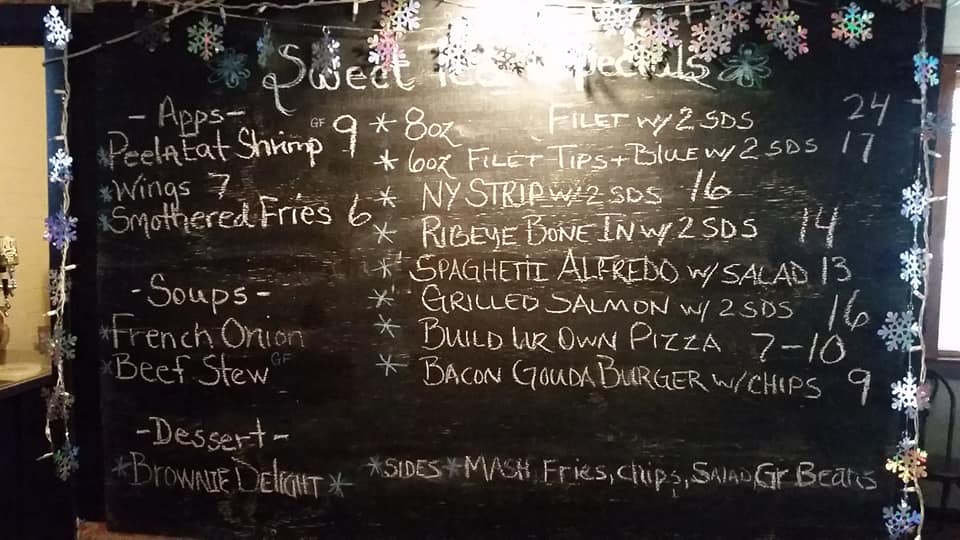 Sweet Teas Specials
- Apps -
Peel n Eat Shrimp GF 9
* Wings 7
* Smothered Fries 6
- Soups -
* French Onion
* Beef Stew GF
- Dessert -
* Brownie Delight *
* 8oz Filet w/ 2 SDS 24
* 6oz Filet Tips + Blue w/ 2 SDS 17
* NY Strip w/ 2 SDS 16
* Ribeye Bone In w/ 2 SDS 14
* Spaghetti Alfredo w/ Salad 13
* Grilled Salmon w/ 2 SDS 16
* Build Ur Own Pizza 7-10
* Bacon Gouda Burger w/ Chips 9
* Sides * Mash, Fries, Chips, Salad, Gr Beans